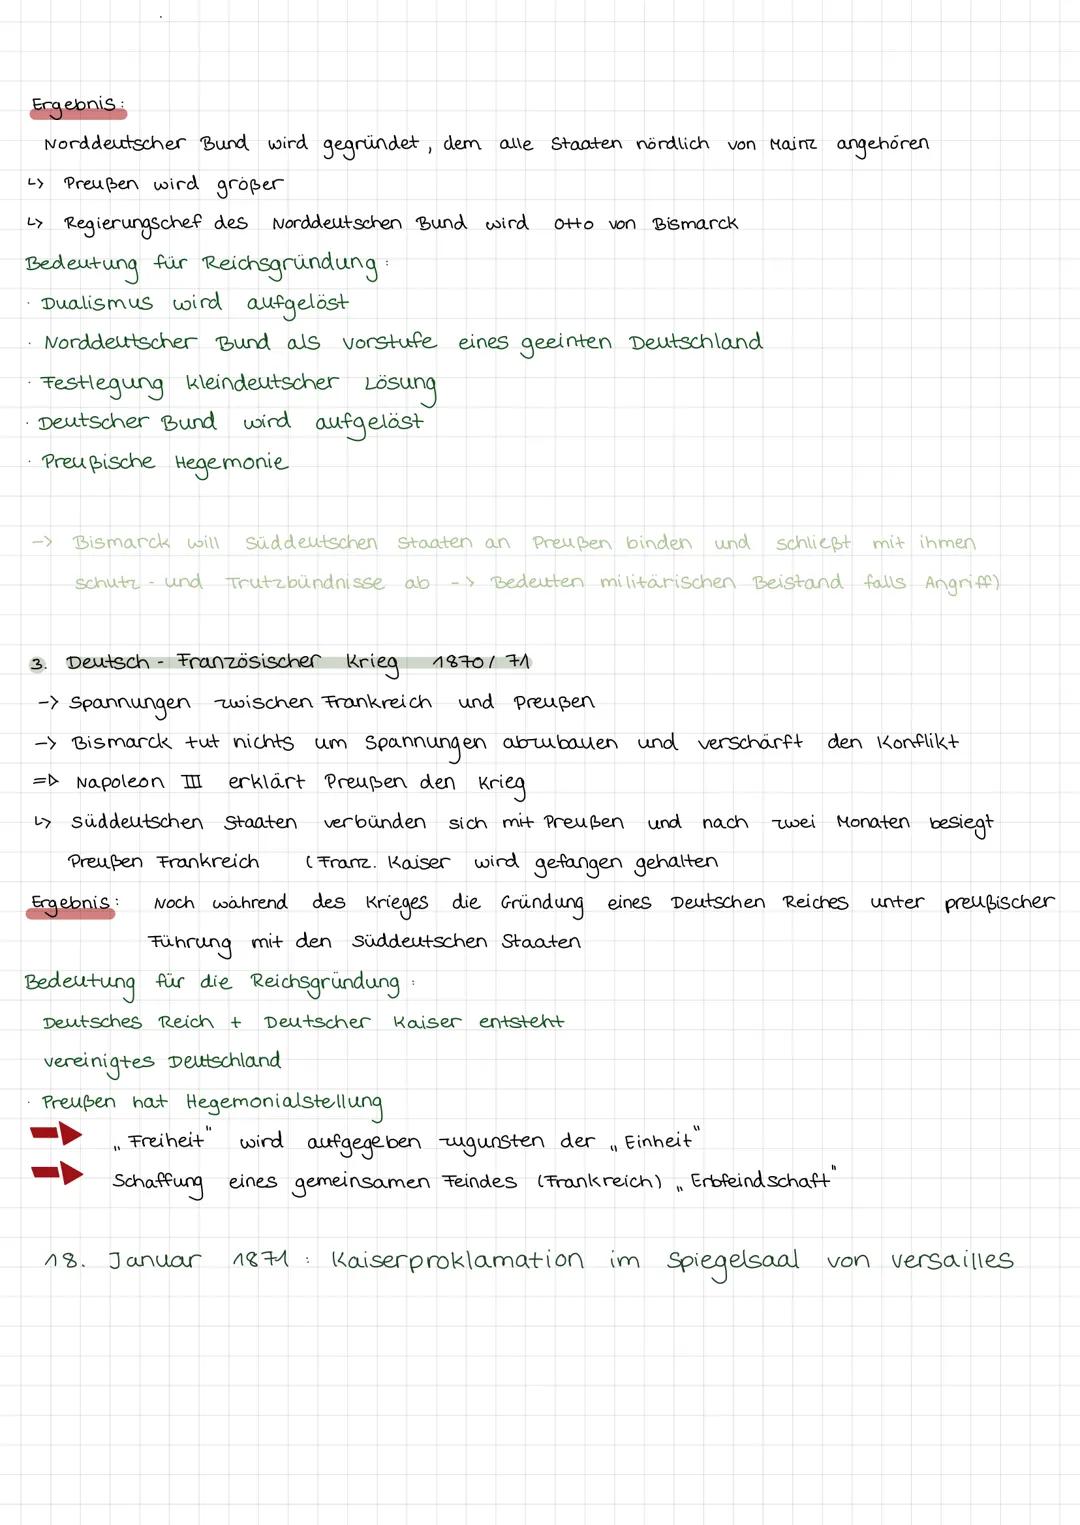 Ergebnis:
Norddeutscher Bund wird gegründet, dem alle Staaten nördlich von Mainz angehören
↳ Preußen wird größer
↳ Regierungschef des Norddeutschen Bund wird Otto von Bismarck
Bedeutung für Reichsgründung:
· Dualismus wird aufgelöst
· Norddeutscher Bund als Vorstufe eines geeinten Deutschland
· Festlegung kleindeutscher Lösung
· Deutscher Bund wird aufgelöst
· Preußische Hegemonie
-> Bismarck will süddeutschen Staaten an Preußen binden und schließt mit ihmen
Schutz- und Trutzbündnisse ab -> Bedeuten militärischen Beistand falls Angriff)
3. Deutsch-Französischer Krieg 1870/71
-> Spannungen zwischen Frankreich und Preußen
-> Bismarck tut nichts um Spannungen abzubauen und verschärft den Konflikt
=> Napoleon III erklärt Preußen den Krieg
↳ süddeutschen Staaten verbünden sich mit Preußen und nach zwei Monaten besiegt
Preußen Frankreich (Franz. Kaiser wird gefangen gehalten
Ergebnis: Noch während des Krieges die Gründung eines Deutschen Reiches unter preußischer
Führung mit den süddeutschen Staaten
Bedeutung für die Reichsgründung:
Deutsches Reich + Deutscher Kaiser entsteht
vereinigtes Deutschland
· Preußen hat Hegemonialstellung
„Freiheit" wird aufgegeben zugunsten der „Einheit"
Schaffung eines gemeinsamen Feindes (Frankreich) „Erbfeindschaft"
18. Januar 1871: Kaiserproklamation im Spiegelsaal von Versailles